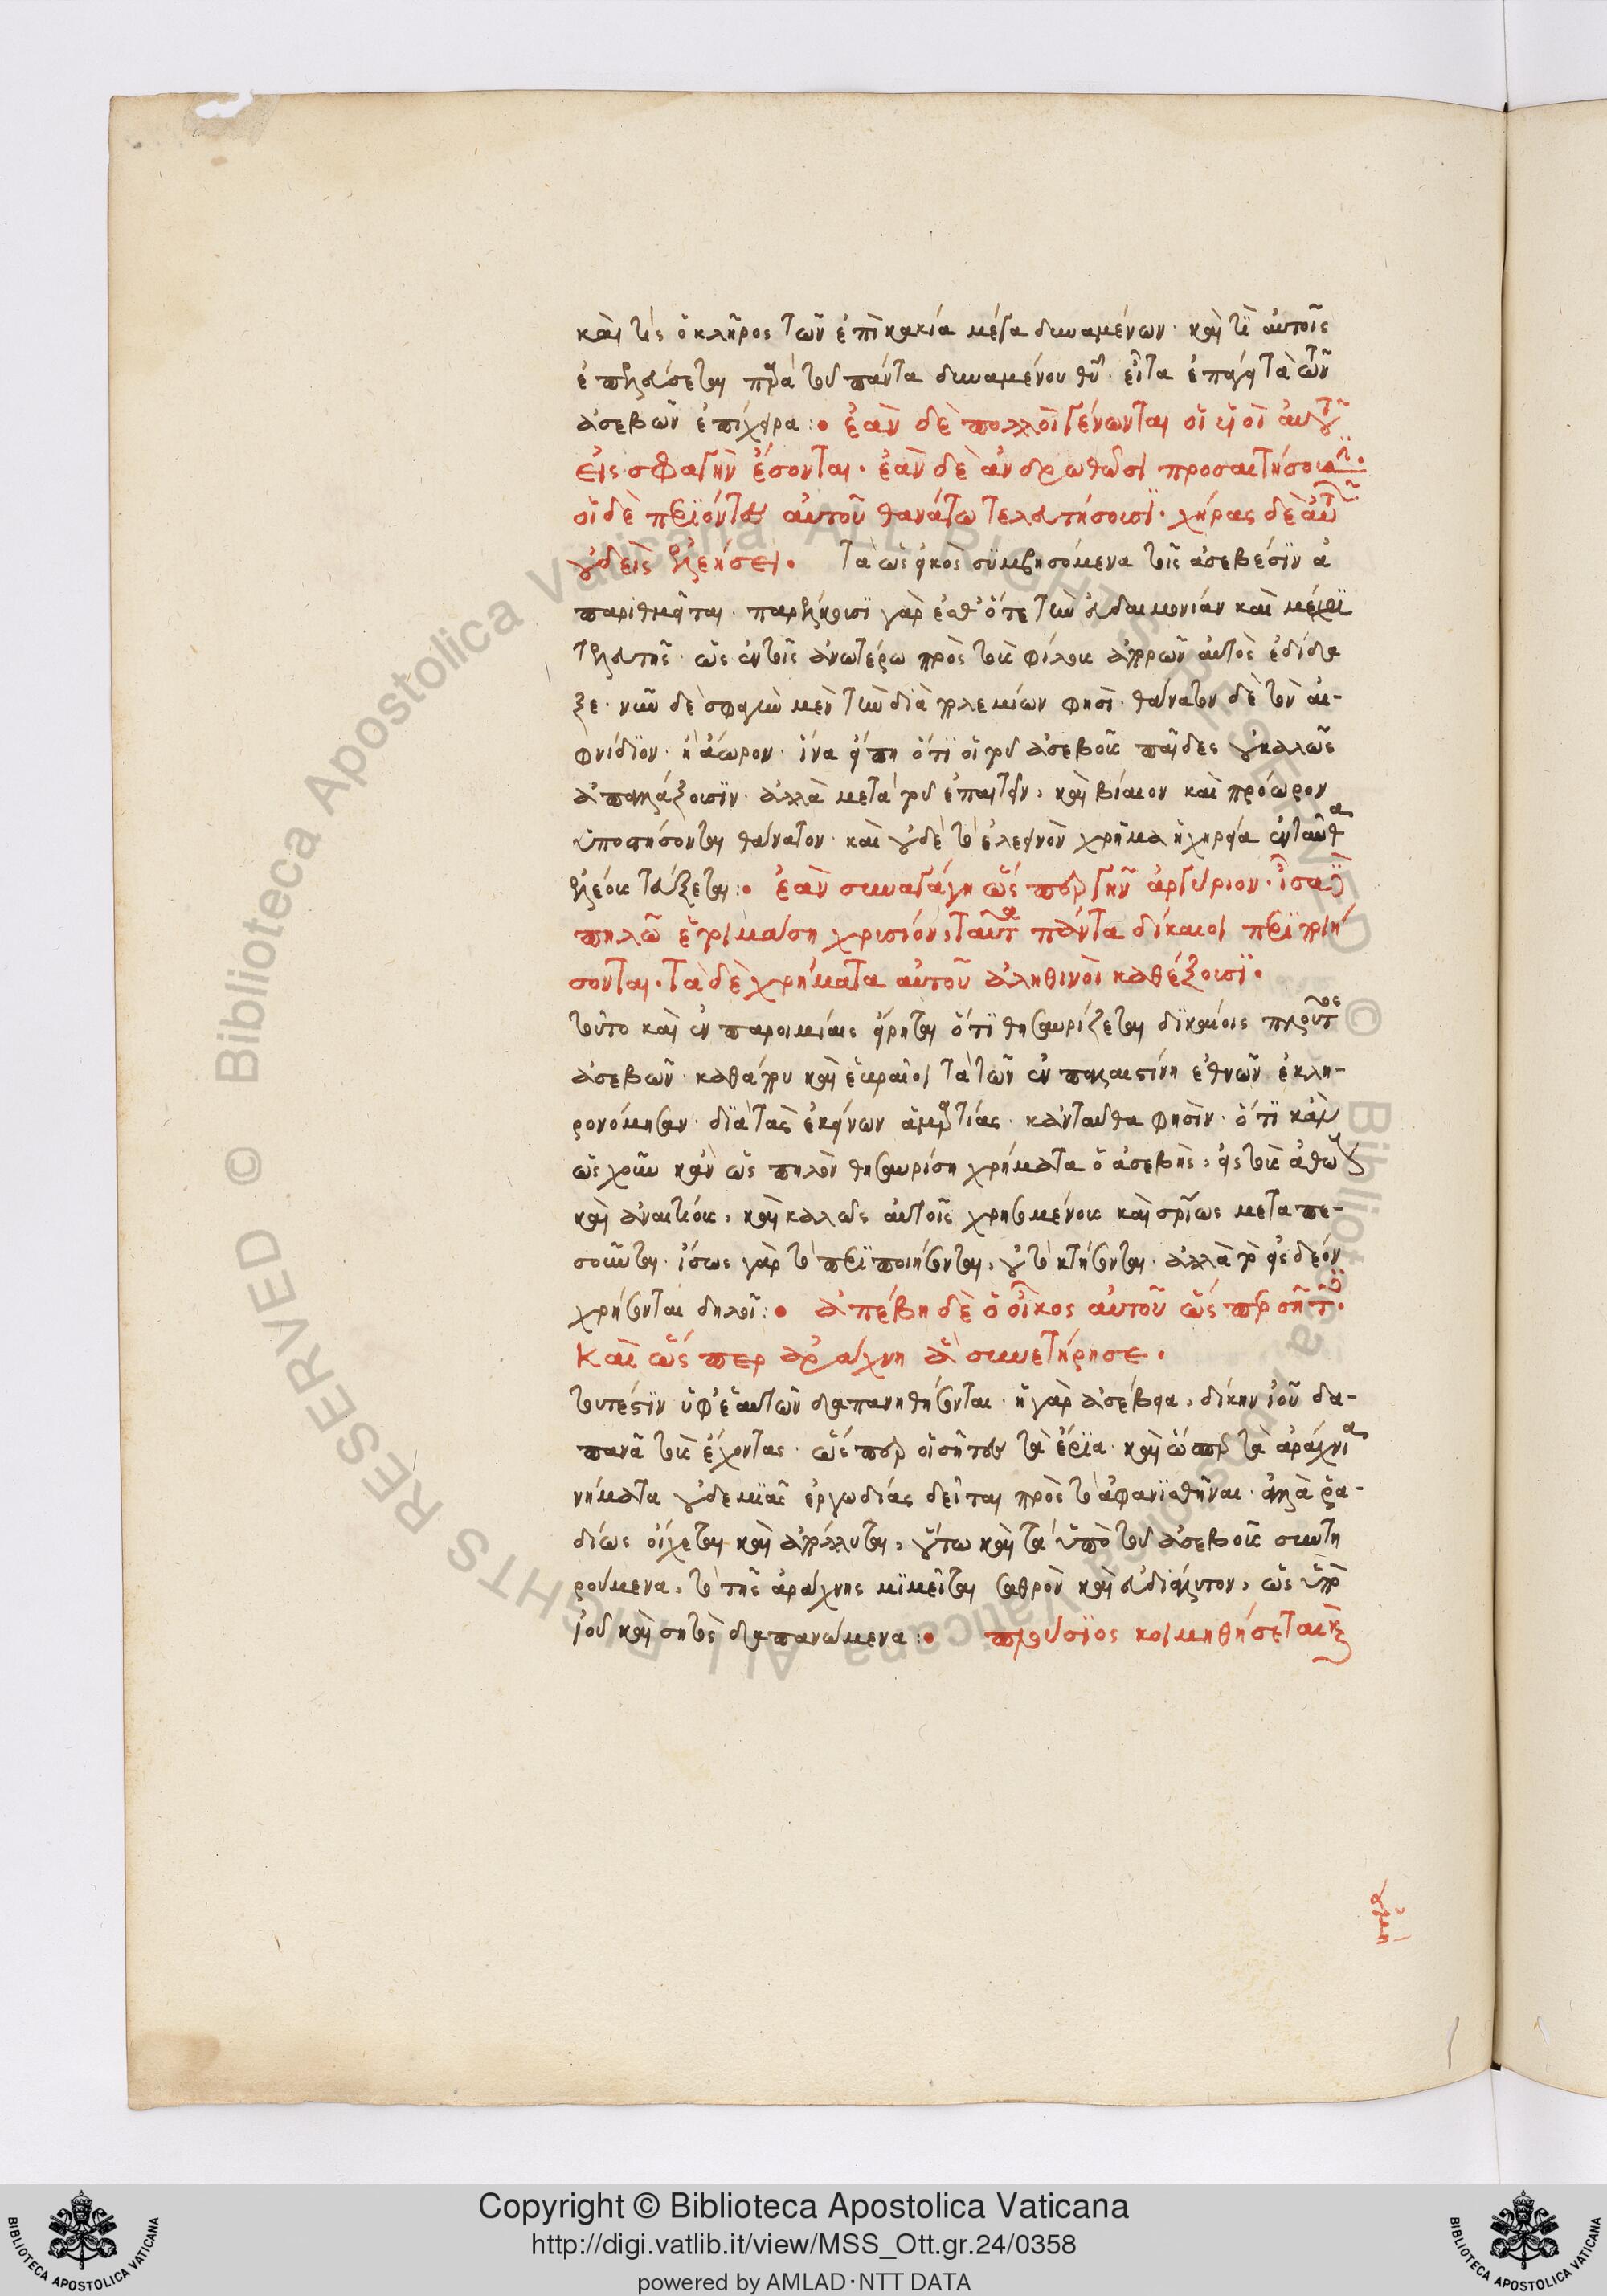 καὶ τίς ὁ κλῆρος τῶν ἐπὶ κακία μέγα δυναμένων· καὶ τί αὐτοῖς
ἐπελεύσεται παρὰ τοῦ πάντα δυναμένου θυ· εἶτα ἐπάγει τὰ τῶν
ἀσεβῶν ἐπίχειρα :• ἐὰν δὲ πολλοὶ γένωνται οἱ υἱοὶ αὐτοῦ
εἰς σφαγὴν ἔσονται. ἐὰν δὲ ἀνδρωθῶσι προσαιτήσουσιν.
οἱ δὲ περιόντες αὐτοῦ θανάτω τελευτήσουσι. χήρας δὲ αὐτῶν
οὐδεὶς ἐλεήσει. τὰ ὡς εἰκὸς συμβησόμενα τοῖς ἀσεβέσιν ἀ
παριθμεῖται. παρέλκουσι γὰρ ἐσθ' ὅτε τὴν εὐδαιμονίαν καὶ μέχρι
τελευτῆς· ὡς ἐν τοῖς ἀνωτέρω πρὸς τοὺς φίλους ἀπορῶν αὐτὸς ἐδίδα
ξε· νῦν δὲ σφαγὴν μὲν τὴν διὰ πολεμίων φησὶ· θάνατον δὲ τὸν αἰ-
φνίδιον· ἢ ἄωρον· ἵνα εἴπη ὅτι οἱ τοῦ ἀσεβοῦς παῖδες οὐ καλῶς
ἀπαλλάξουσιν· ἀλλὰ μετὰ τοῦ ἐπαιτεῖν, καὶ βίαιον καὶ πρόωρον
ὑποστήσονται θάνατον· καὶ οὐδὲ τὸ ἐλεεινὸν χρῆμα ἡ χηρεία ἐνταῦθα
ἐλέους τεύξεται :• ἐὰν συναγάγη ὥσπερ γῆν ἀργύριον. ἴσα δὲ
πηλῶ ἑτοιμάση χρυσίον, ταῦτα πάντα δίκαιοι περιποιή
σονται. τὰ δὲ χρήματα αὐτοῦ ἀληθινοὶ καθέξουσι.
τοῦτο καὶ ἐν παροιμίαις εἴρηται ὅτι θησαυρίζεται δικαίοις πλοῦτος
ἀσεβῶν· καθάπερ καὶ ἑβραῖοι τὰ τῶν ἐν παλαιστίνη ἐθνῶν ἐκλη-
ρονόμησαν· διὰ τὰς ἐκείνων ἁμαρτίας· κἀνταῦθα φησὶν· ὅτι κἂν
ὡς χοῦν κἂν ὡς πηλὸν θησαυρίση χρήματα ὁ ἀσεβὴς, εἰς τοὺς ἀθώους
καὶ ἀναιτίους, καὶ καλῶς αὐτοῖς χρησομένους καὶ ὁσίως μεταπε-
σοῦνται· ἴσως γὰρ τὸ περιποιήσονται, οὐ τὸ κτήσονται· ἀλλὰ τὸ εἰς δέον
χρήσονται δηλοῖ :• ἀπέβη δὲ ὁ οἶκος αὐτοῦ ὥσπερ σῆτες.
Καὶ ὥσπερ ἀράχνη ἃ συνετήρησε.
τουτέστιν ὑφ' ἑαυτῶν δαπανηθήσονται· ἡ γὰρ ἀσέβεια, δίκην ἰοῦ δα-
πανᾶ τοὺς ἔχοντας· ὥσπερ οἱ σῆτες τὰ ἔρια· καὶ ὥσπερ τὰ ἀράχνια
νήματα οὐδεμιᾶς ἐργωδίας δεῖται πρὸς τὸ ἀφανισθῆναι· ἀλλὰ ῥα-
δίως οἴχεται καὶ ἀπόλλυται, οὕτω καὶ τὰ ὑπὸ τοῦ ἀσεβοῦς συντη
ρούμενα, τὸ τῆς ἀράχνης μιμεῖται σαθρὸν καὶ εὐδιάλυτον, ὡς ὑπὸ
ἰοῦ καὶ σητὸς δαπανώμενα :• πλούσιος κοιμηθήσεται καὶ
Copyright © Biblioteca Apostolica Vaticana
http://digi.vatlib.it/view/MSS_Ott.gr.24/0358
powered by AMLAD·NTT DATA
BIBLIOTECA APOSTOLICA VATICANA
BIBLIOTECA APOSTOLICA VATICANA